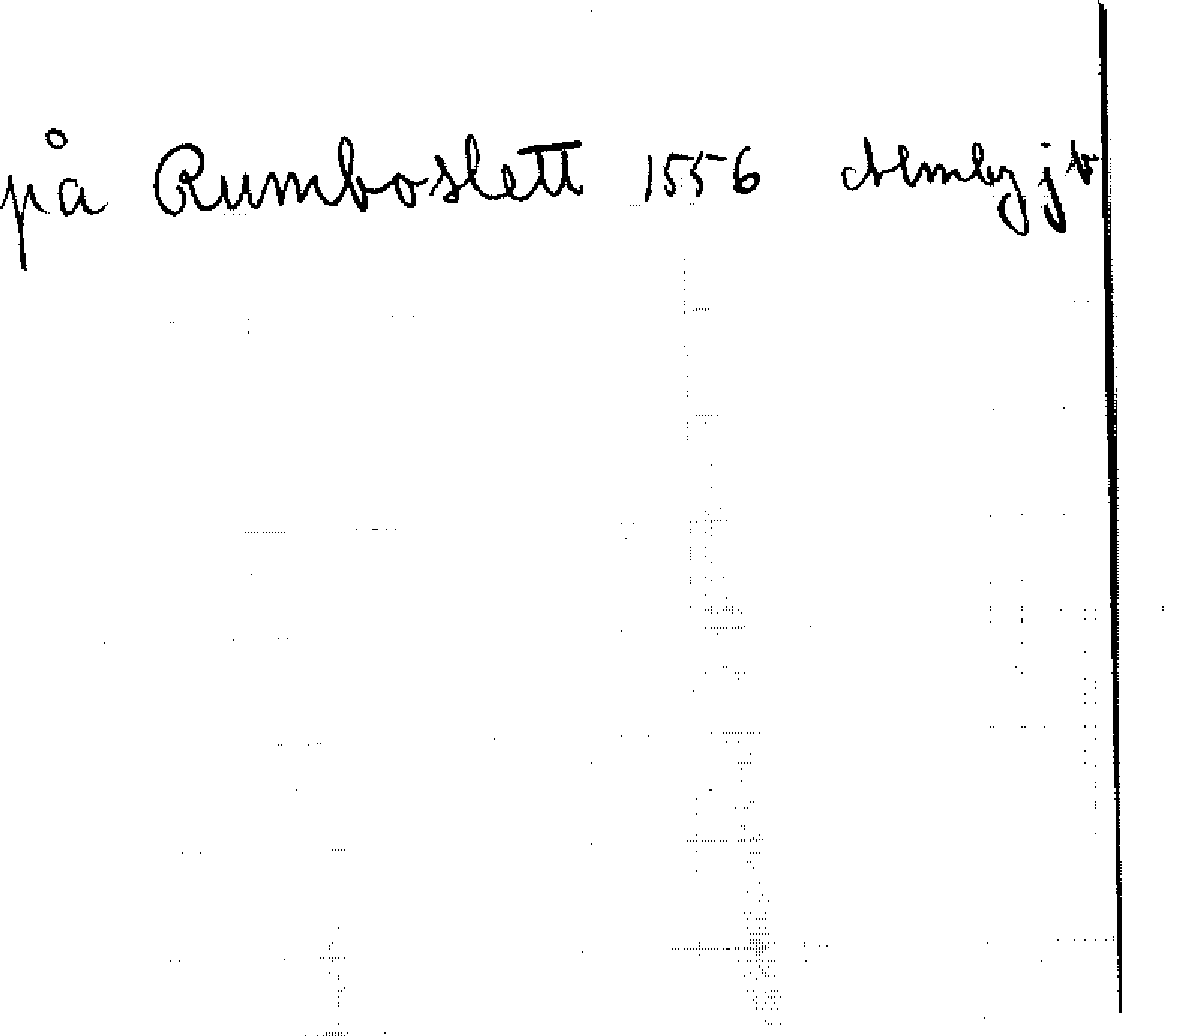 på Rumboslett 1556 Almby jb